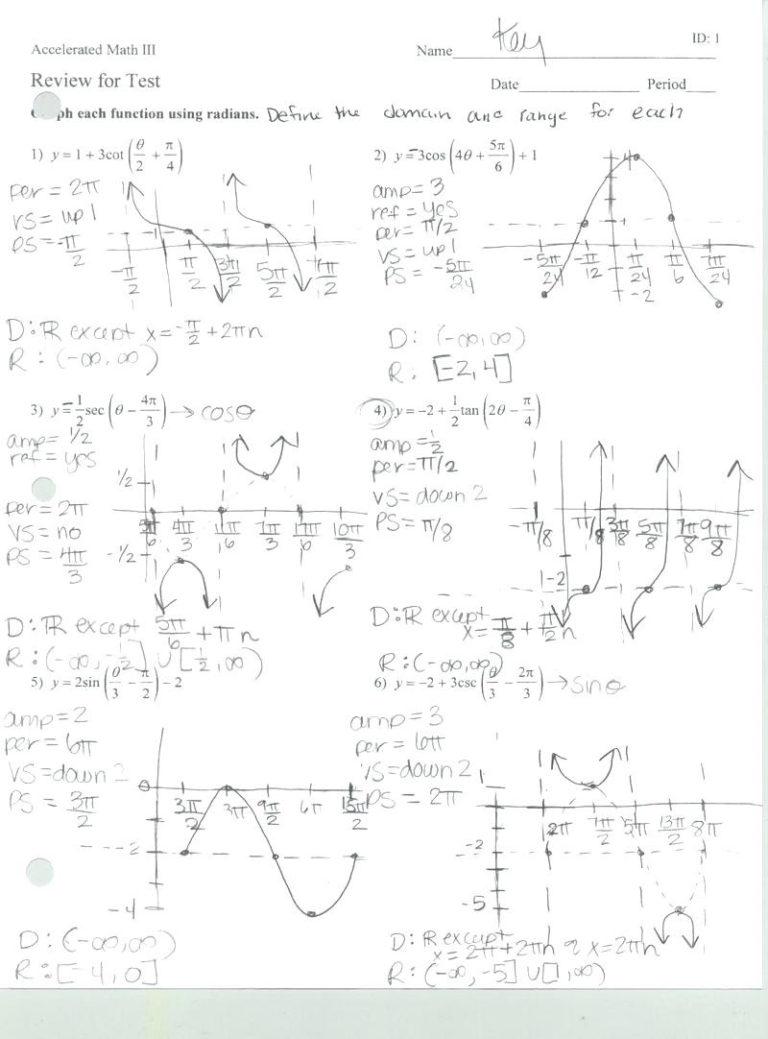 ID: 1
Accelerated Math III
Name Key
Review for Test
Date Period
ph each function using radians. Define the domain and range for each
1) y = 1 + 3cot(θ/2 + π/4)
per = 2π
VS = up 1
PS = -π/2
-π/2 π/2 3π/2 5π/2 7π/2
D: ℝ except x = -π/2 + 2πn
R: (-∞, ∞)
2) y = -3cos(4θ + 5π/6) + 1
amp = 3
ref = yes
per = π/2
VS = up 1
PS = -5π/24
-5π/24 -π/12 π/24 π/6 7π/24
-2
D: (-∞, ∞)
R: [-2, 4]
3) y = -1/2 sec(θ - 4π/3) → cosθ
amp = 1/2
ref = yes
per = 2π
VS = no
PS = 4π/3
1/2
5π/6 4π/3 11π/6 7π/3 17π/6 10π/3
-1/2
D: ℝ except 5π/6 + πn
R: (-∞, -1/2] ∪ [1/2, ∞)
4) y = -2 + 1/2 tan(2θ - π/4)
amp = 1/2
per = π/2
VS = down 2
PS = π/8
-π/8 π/8 3π/8 5π/8 7π/8 9π/8
-2
D: ℝ except
x = π/8 + π/2 n
R: (-∞, ∞)
5) y = 2sin(θ/3 - π/2) - 2
amp = 2
per = 6π
VS = down 2
PS = 3π/2
0
3π/2 3π 9π/2 6π 15π/2
-2
-4
D: (-∞, ∞)
R: [-4, 0]
6) y = -2 + 3csc(θ/3 - 2π/3) → sinθ
amp = 3
per = 6π
VS = down 2
PS = 2π
1
2π 7π/2 5π 13π/2 8π
-2
-5
D: ℝ except
x = 2π + 2πn & x = 2πn
R: (-∞, -5] ∪ [1, ∞)